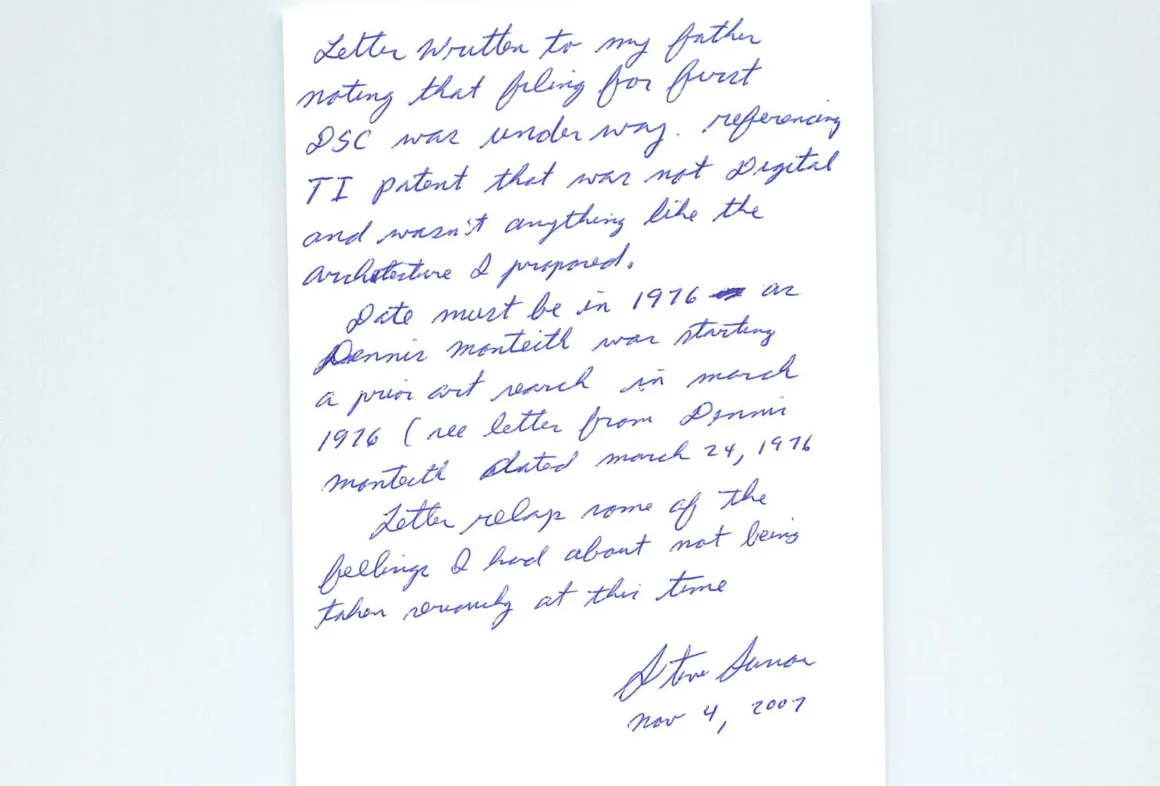 Letter Written to my father
noting that filing for first
DSC was under way. referencing
TI patent that was not Digital
and wasn't anything like the
architecture I proposed.
Date must be in 1976 as
Dennis Monteith was starting
a prior art search in march
1976 (see letter from Dennis
Monteith dated march 24, 1976
Letter relays some of the
feelings I had about not being
taken seriously at this time
Steve
Nov 4, 2007